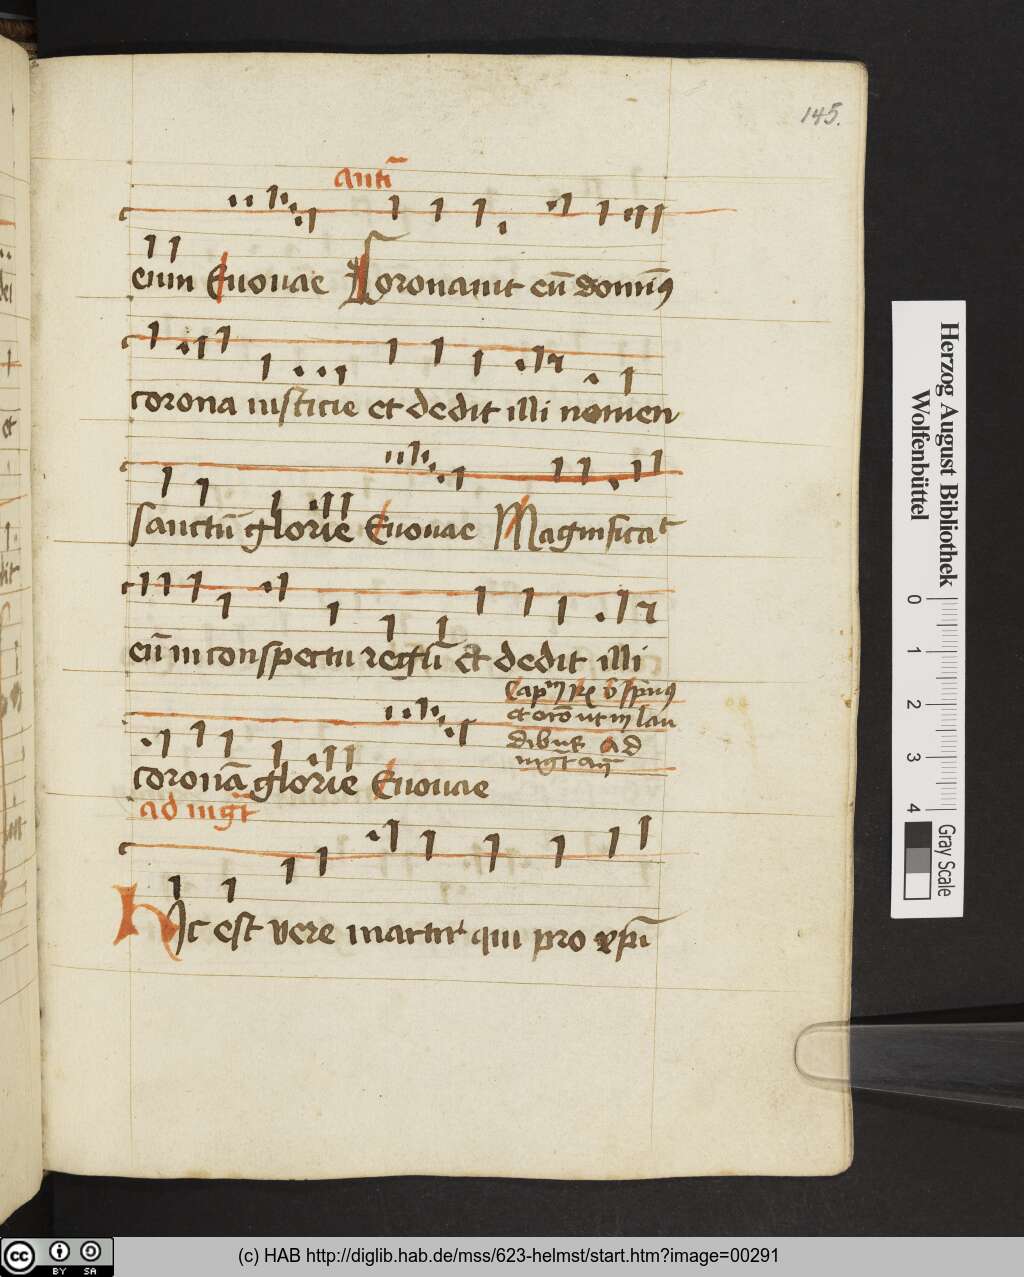 145.
Antī
eum Euouae Coronauit eū dominꝰ
corona iusticie et dedit illi nomen
sanctū glorie Euouae Magnificat
eū in conspectu regū et dedit illi
et orō ut in lau
dibus Ad
coronā glorie Euouae
ad mgt̄
Hic est vere martir qui pro xpī
Herzog August Bibliothek
Wolfenbüttel
0 1 2 3 4
Gray Scale
cc BY SA
(c) HAB http://diglib.hab.de/mss/623-helmst/start.htm?image=00291